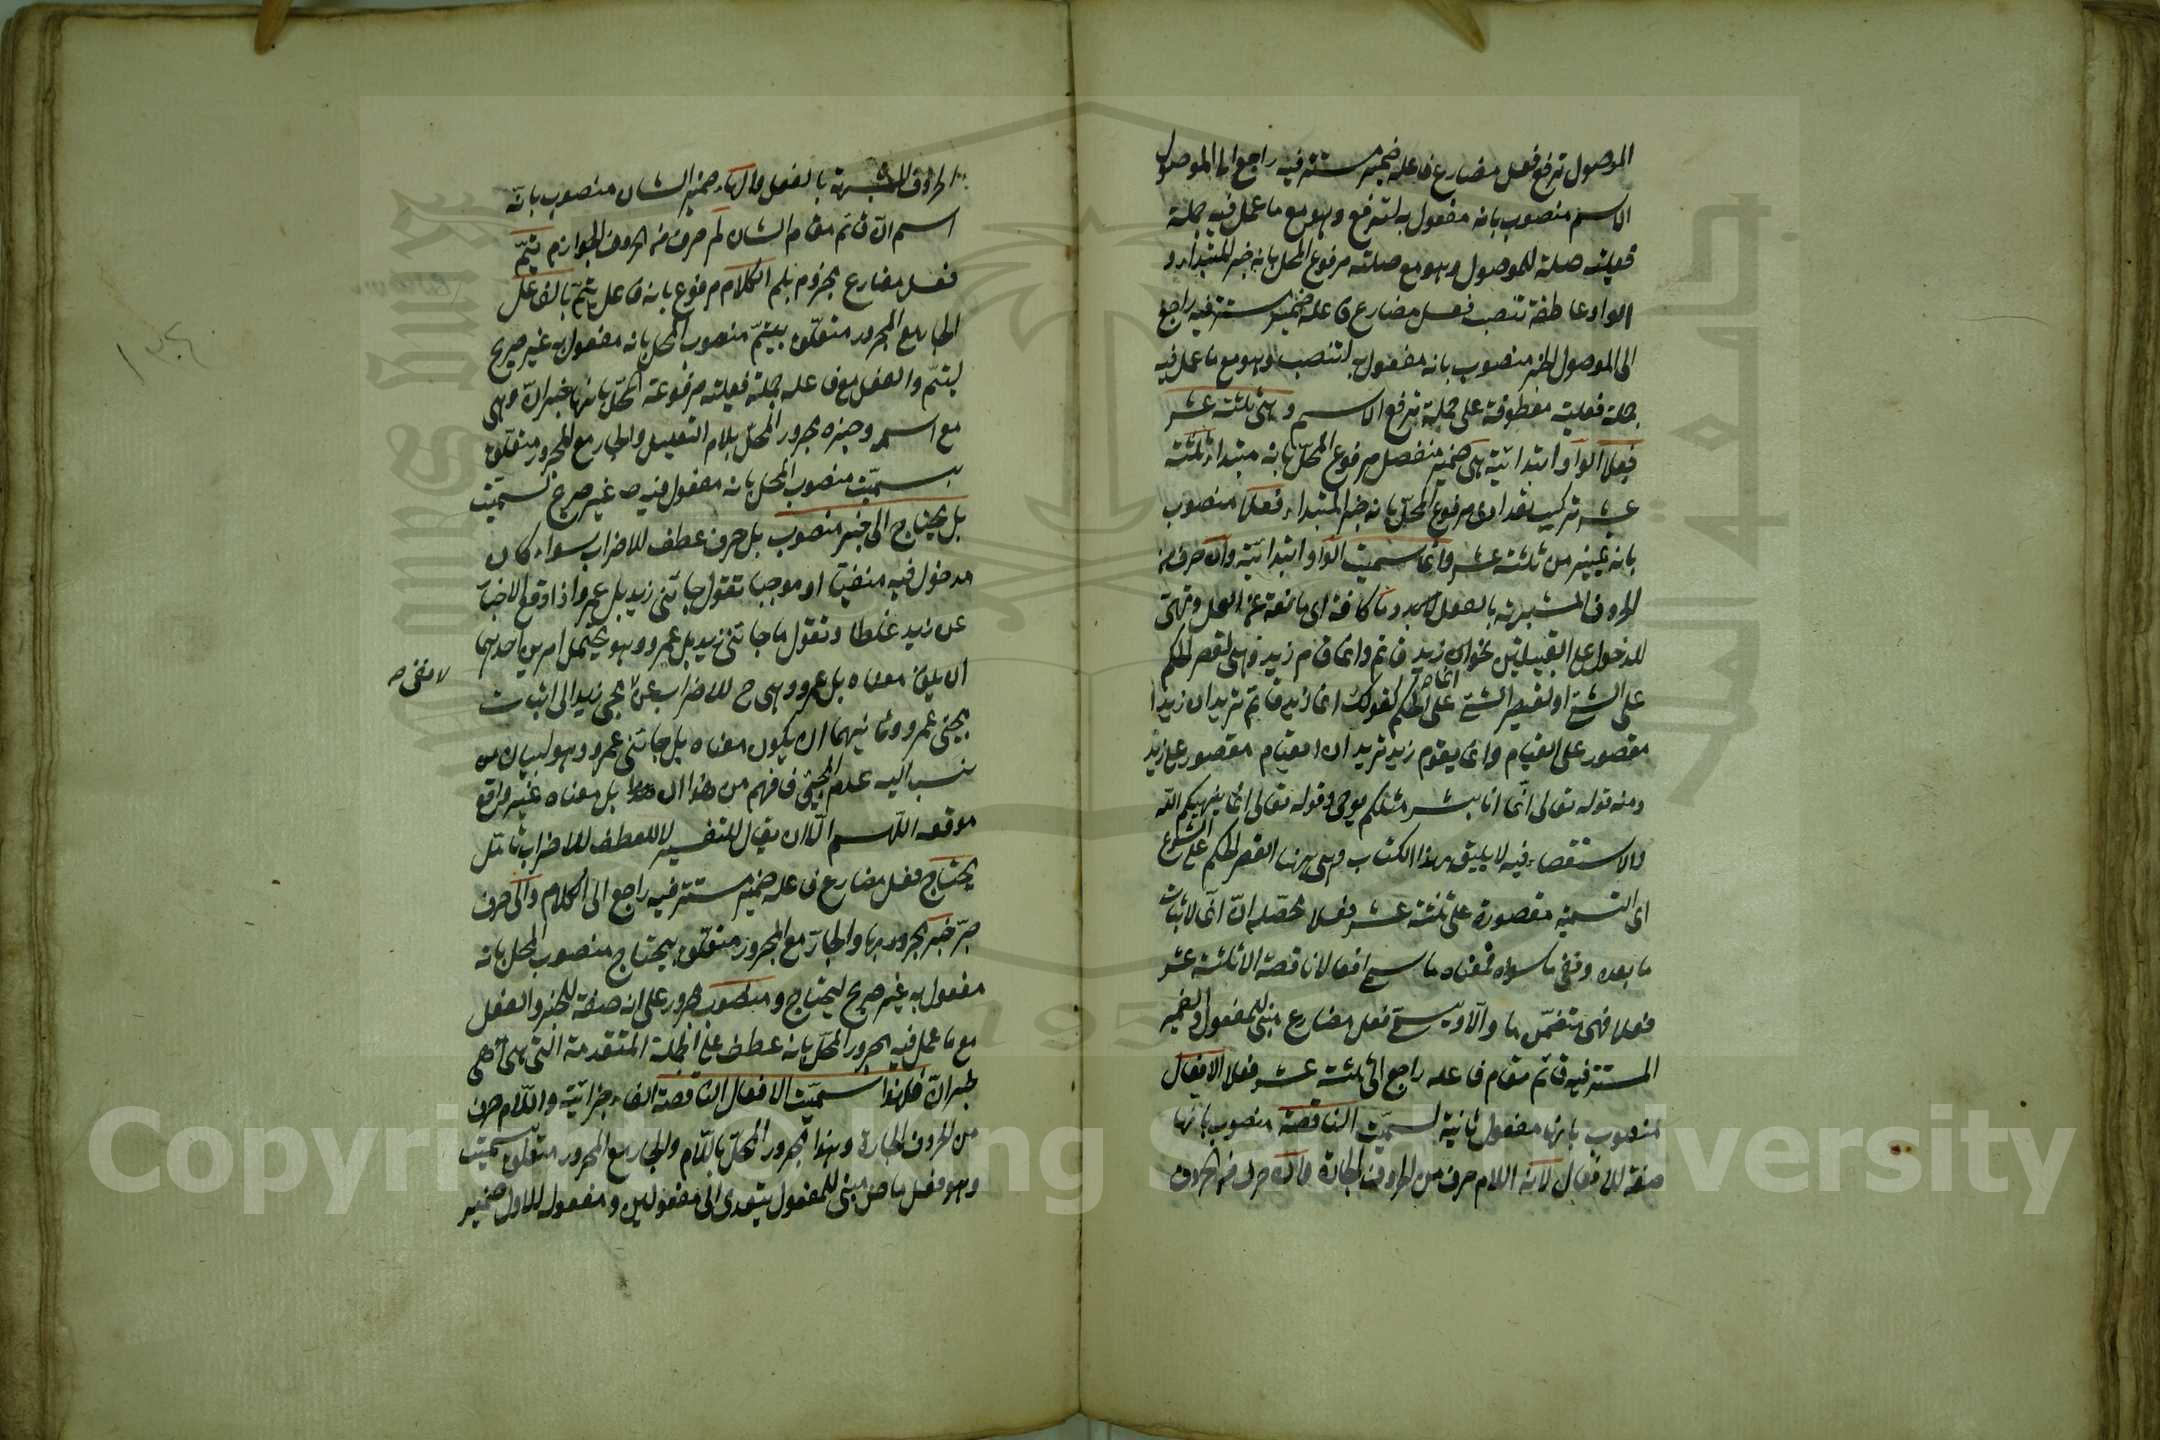 الموصول ترفع فعل مضارع فاعله ضمير مستتر فيه راجع الى الموصول
الاسم منصوب بانه مفعول به لترفع وهو مع ما عمل فيه جملة
فعلية صلة للموصول وهو مع صلته مرفوع المحل بانه خبر المبتداء و
الواو عاطفة تنصب فعل مضارع فاعله ضمير مستتر فيه راجع
الى الموصول الخبر منصوب بانه مفعول به لتنصب وهو مع ما عمل فيه
جملة فعلية معطوفة على جملة ترفع الاسم وهى ثلثة عشر
فعلا الواو ابتدائية هى ضمير منفصل مرفوع المحل بانه مبتداء ثلثة
عشر تركيب تعدادى مرفوع المحل بانه خبر المبتداء فعلا منصوب
بانه تمييز من ثلثة عشر وانما سميت الواو ابتدائية وان حرف من
الحروف المشبهة بالفعل وما كافة اى مانعة عن العمل
للدخول على القبيلتين نحو انما زيد قائم وانما قام زيد وهى لقصر الحكم
على الشئ او لقصر الشئ على الحكم كقولك انما زيد قائم تريد ان زيدا
مقصور على القيام وانما يقوم زيد تريد ان القيام مقصور على زيد
ومنه قوله تعالى انما انا بشر مثلكم يوحى وقوله تعالى انما ينهيكم الله
والاستقصاء فيه لا يليق بهذا الكتاب وهى ههنا لقصر الحكم على الشئ
اى التسمية مقصورة على ثلثة عشر فعلا محصله ان ان لاثبات
ما بعده ونفى ما سواه فمعناه ما سمى افعالا ناقصة الا ثلثة عشر
فعلا فهى متضمن ما والا ويسمى فعل مضارع مبنى للمفعول والضمير
المستتر فيه قائم مقام فاعله راجع الى ثلثة عشر فعلا الافعال
منصوب بانها مفعول ثانية لسميت الناقصة منصوب بانها
صفة للافعال لانه اللام حرف من الحروف الجارة وان حرف من الحروف
الحروف المشبهة بالفعل والهاء ضمير الشان منصوب بانه
اسم ان قائم مقام الشان لم حرف من الحروف الجوازم يتم
فعل مضارع مجزوم بلم الكلام مرفوع بانه فاعل يتم بالفاعل
الجار مع المجرور متعلق بيتم منصوب المحل بانه مفعول به غير صريح
ليتم والفعل مع فاعله جملة فعلية مرفوعة المحل بانها خبر ان وهى
مع اسمه وخبره مجرور المحل بلام التعليل والجار مع المجرور متعلق
بسميت منصوب المحل بانه مفعول فيه غير صريح لسميت
بل يحتاج الى خبر منصوب بل حرف عطف للاضراب سواء كان
مدخول فيه منفيا او موجبا تقول جائنى زيد بل عمرو اذا وقع الاخبار
عن زيد غلطا وتقول ما جائنى زيد بل عمرو وهو يحتمل امرين احدهما
ان يكون معناه بل عمرو وهى ح للاضراب عن مجئ زيد الى اثبات
مجئ عمرو وثانيهما ان يكون معناه بل جائنى عمرو وهو لبيان من
نسب اليه عدم المجئ فافهم من هذا ان بل معناه غير واقع
موقعه اللهم الا ان يقال للتفسير لا للعطف للاضراب تأمل
يحتاج فعل مضارع فاعله ضمير مستتر فيه راجع الى الكلام والى حرف
جر خبر مجرور بها والجار مع المجرور متعلق بيحتاج منصوب المحل بانه
مفعول به غير صريح ليحتاج ومنصوب مجرور على انه صفة للخبر والفعل
مع ما عمل فيه مجرور المحل بانه عطف على الجملة المتقدمة التى هى
خبر ان فلهذا سميت الافعال الناقصة الفاء جزائية واللام حرف
من الحروف الجارة وهذا مجرور المحل باللام والجار مع المجرور متعلق بسميت
وهو فعل ماض مبنى للمفعول يتعدى الى مفعولين ومفعول الاول ضمير
Copyright © King Saud University
1957